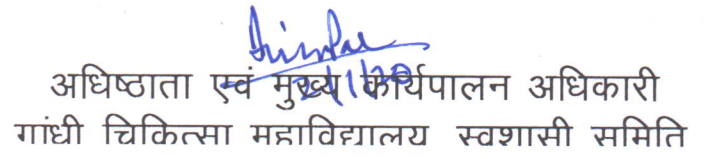 अधिष्ठाता एवं मुख्य कार्यपालन अधिकारी
गांधी चिकित्सा महाविद्यालय स्वशासी समिति